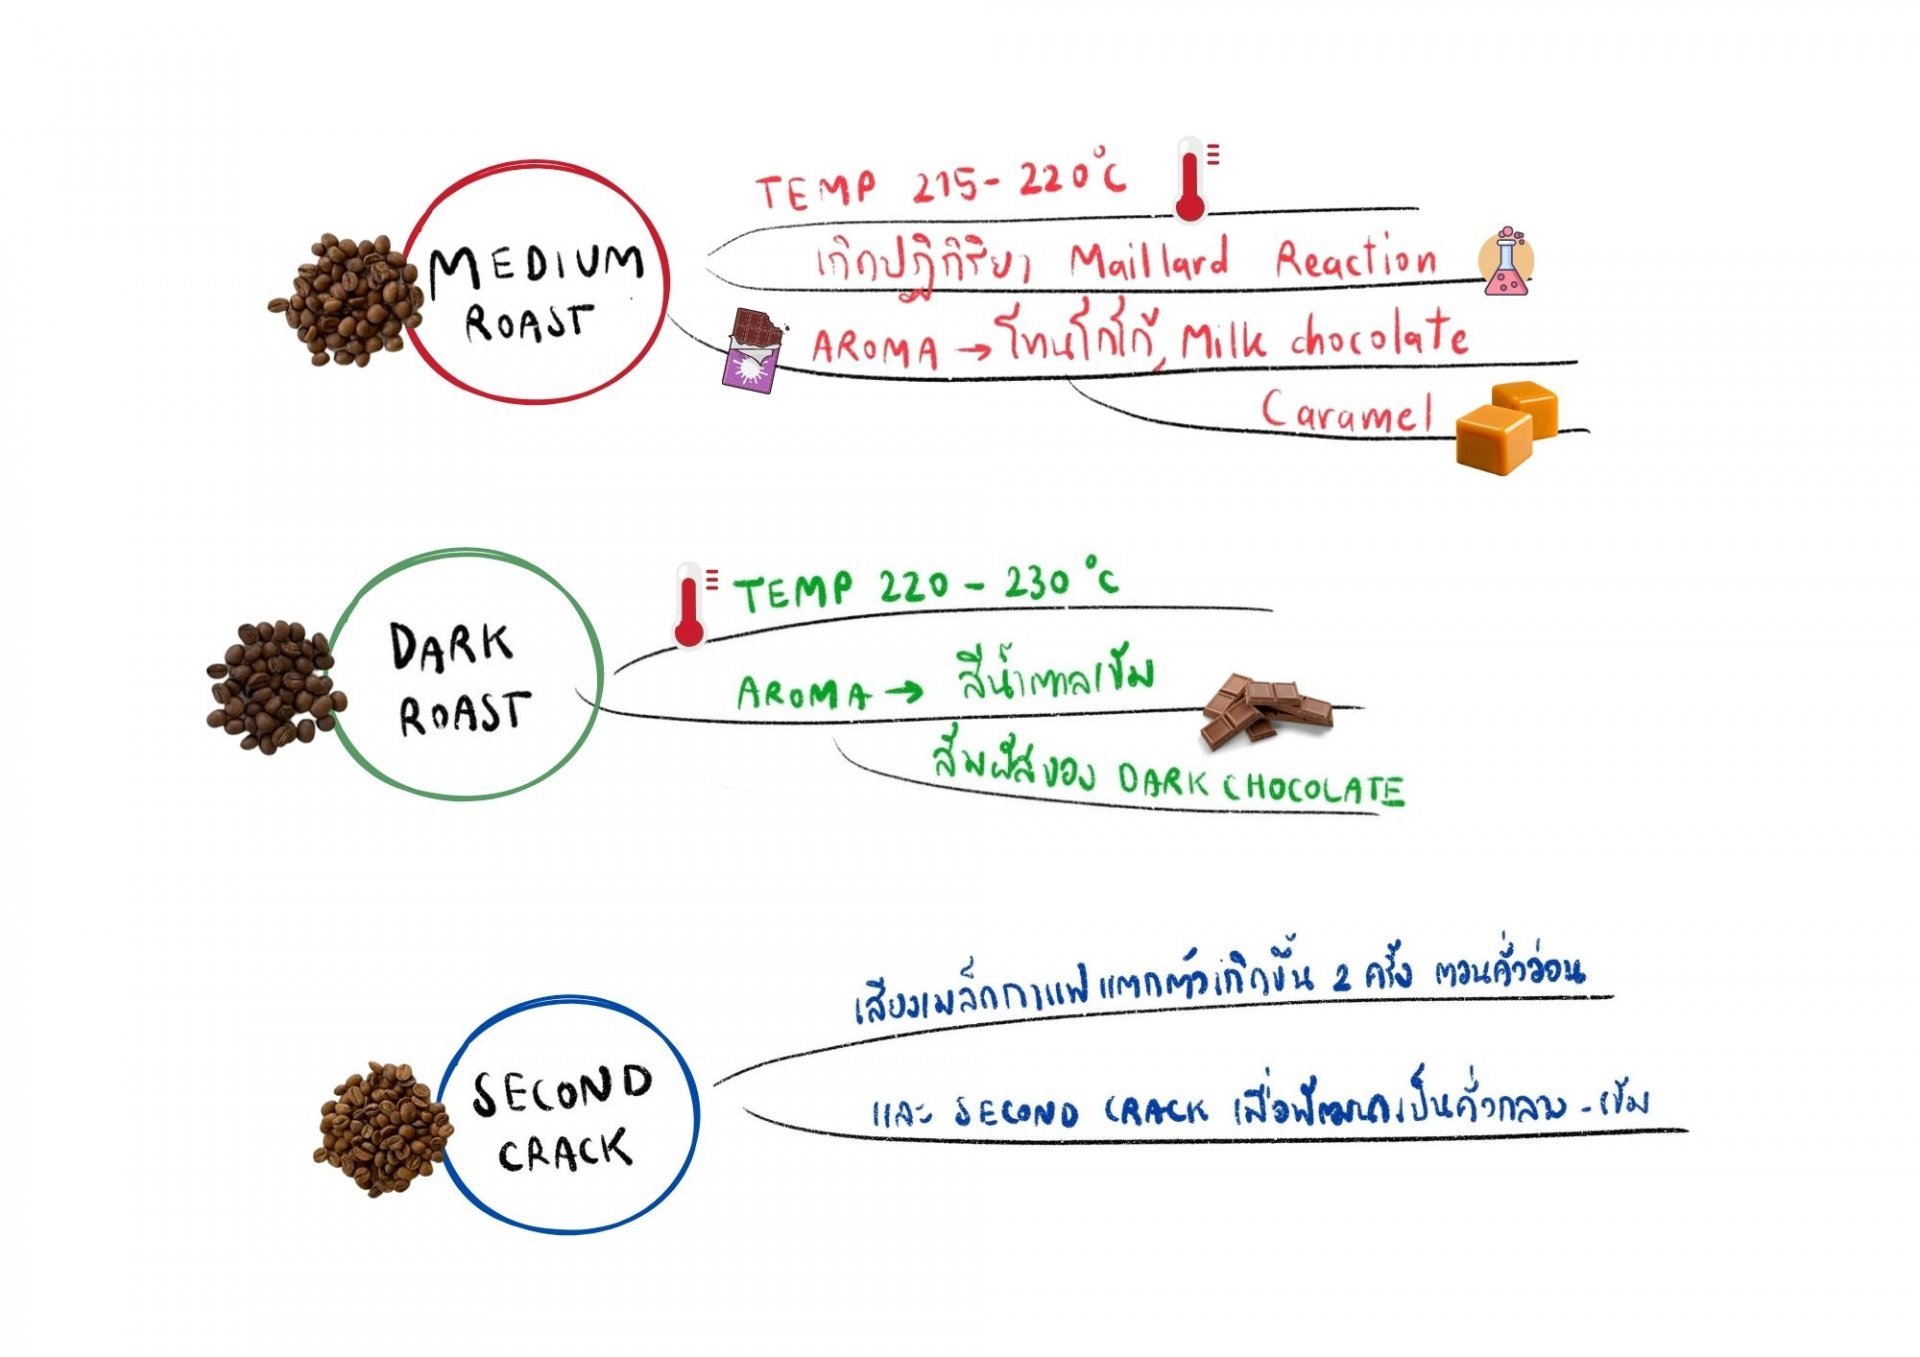 MEDIUM
ROAST
TEMP 215-220°C
เกิดปฏิกิริยา Maillard Reaction
AROMA → โทนโกโก้, Milk chocolate
Caramel
DARK
ROAST
TEMP 220-230°C
AROMA → สีน้ำตาลเข้ม
สัมผัสของ DARK CHOCOLATE
SECOND
CRACK
เสียงเมล็ดกาแฟแตกตัวเกิดขึ้น 2 ครั้ง ตอนคั่วอ่อน
และ SECOND CRACK เมื่อพัฒนาเป็นคั่วกลาง-เข้ม